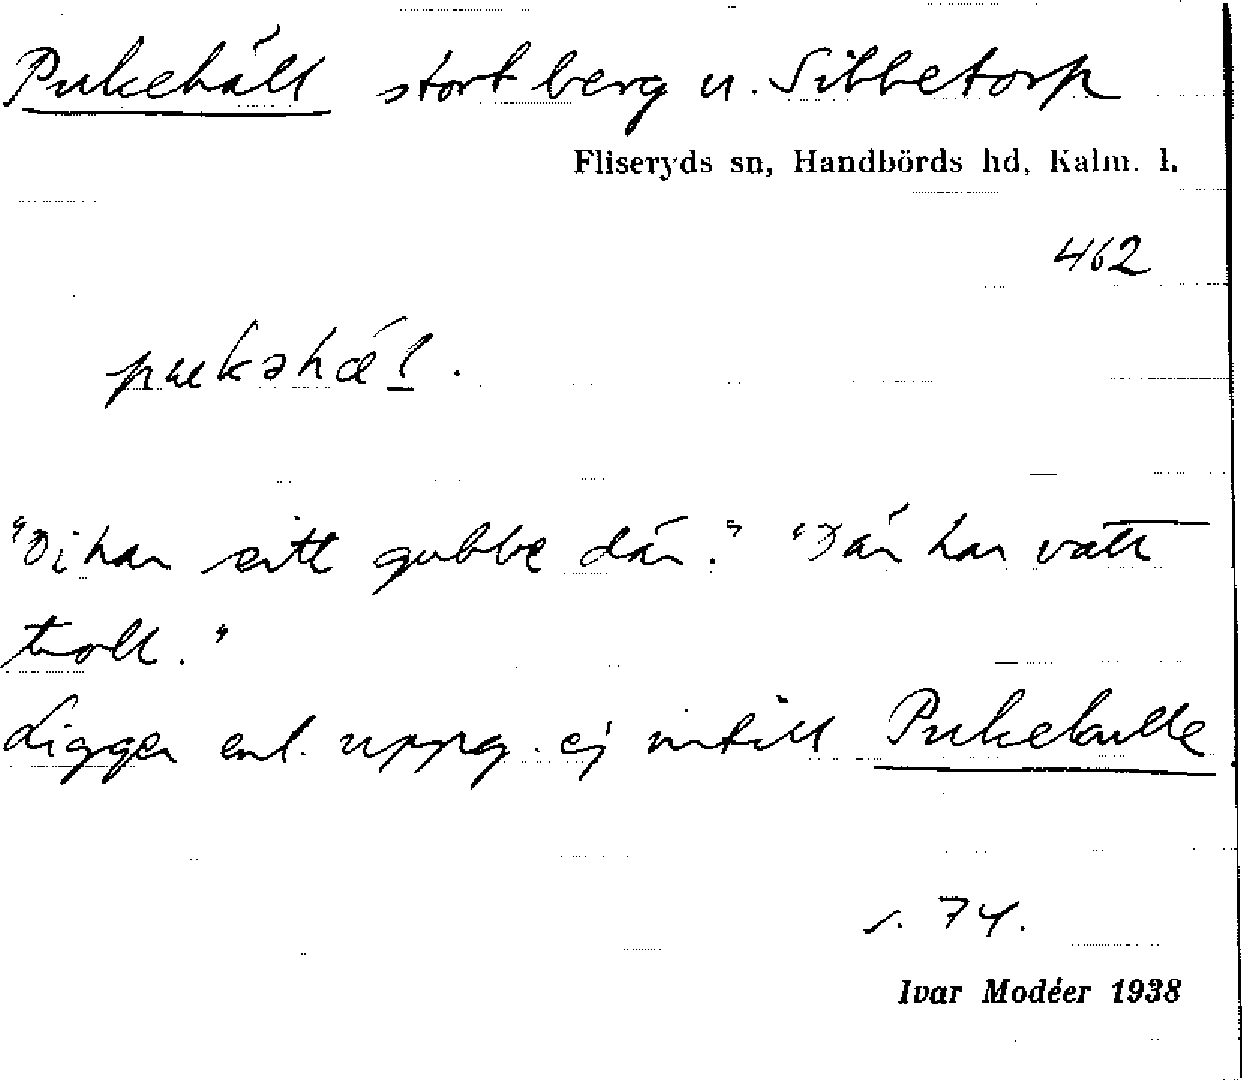 Pukehäll stort berg u. Sibbetorp
Fliseryds sn, Handbörds hd, Kalm. l.
462
pukəhǽl.
"Di har sitt gubbe där." "Där har vatt
troll."
Ligger enl. uppg. ej intill Pukekulle
s. 74.
Ivar Modéer 1938